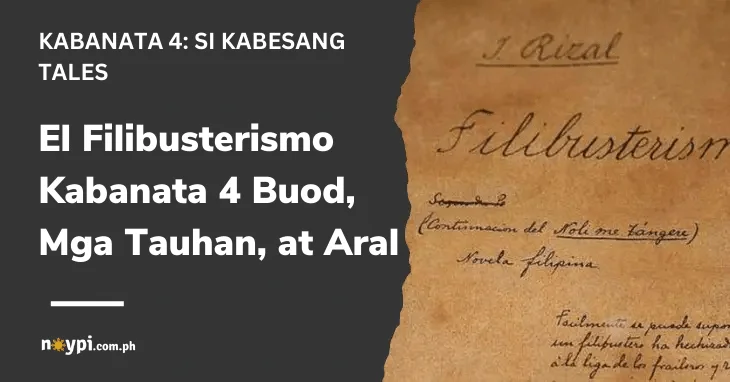 KABANATA 4: SI KABESANG
TALES
El Filibusterismo
Kabanata 4 Buod,
Mga Tauhan, at Aral
noypi.com.ph
J. Rizal
Filibusterism
(Continuacion del Noli me tángere)
Novela filipina
Facilmente se puede supon
un filibustero ha hechizad
á la liga de los fraileros y r